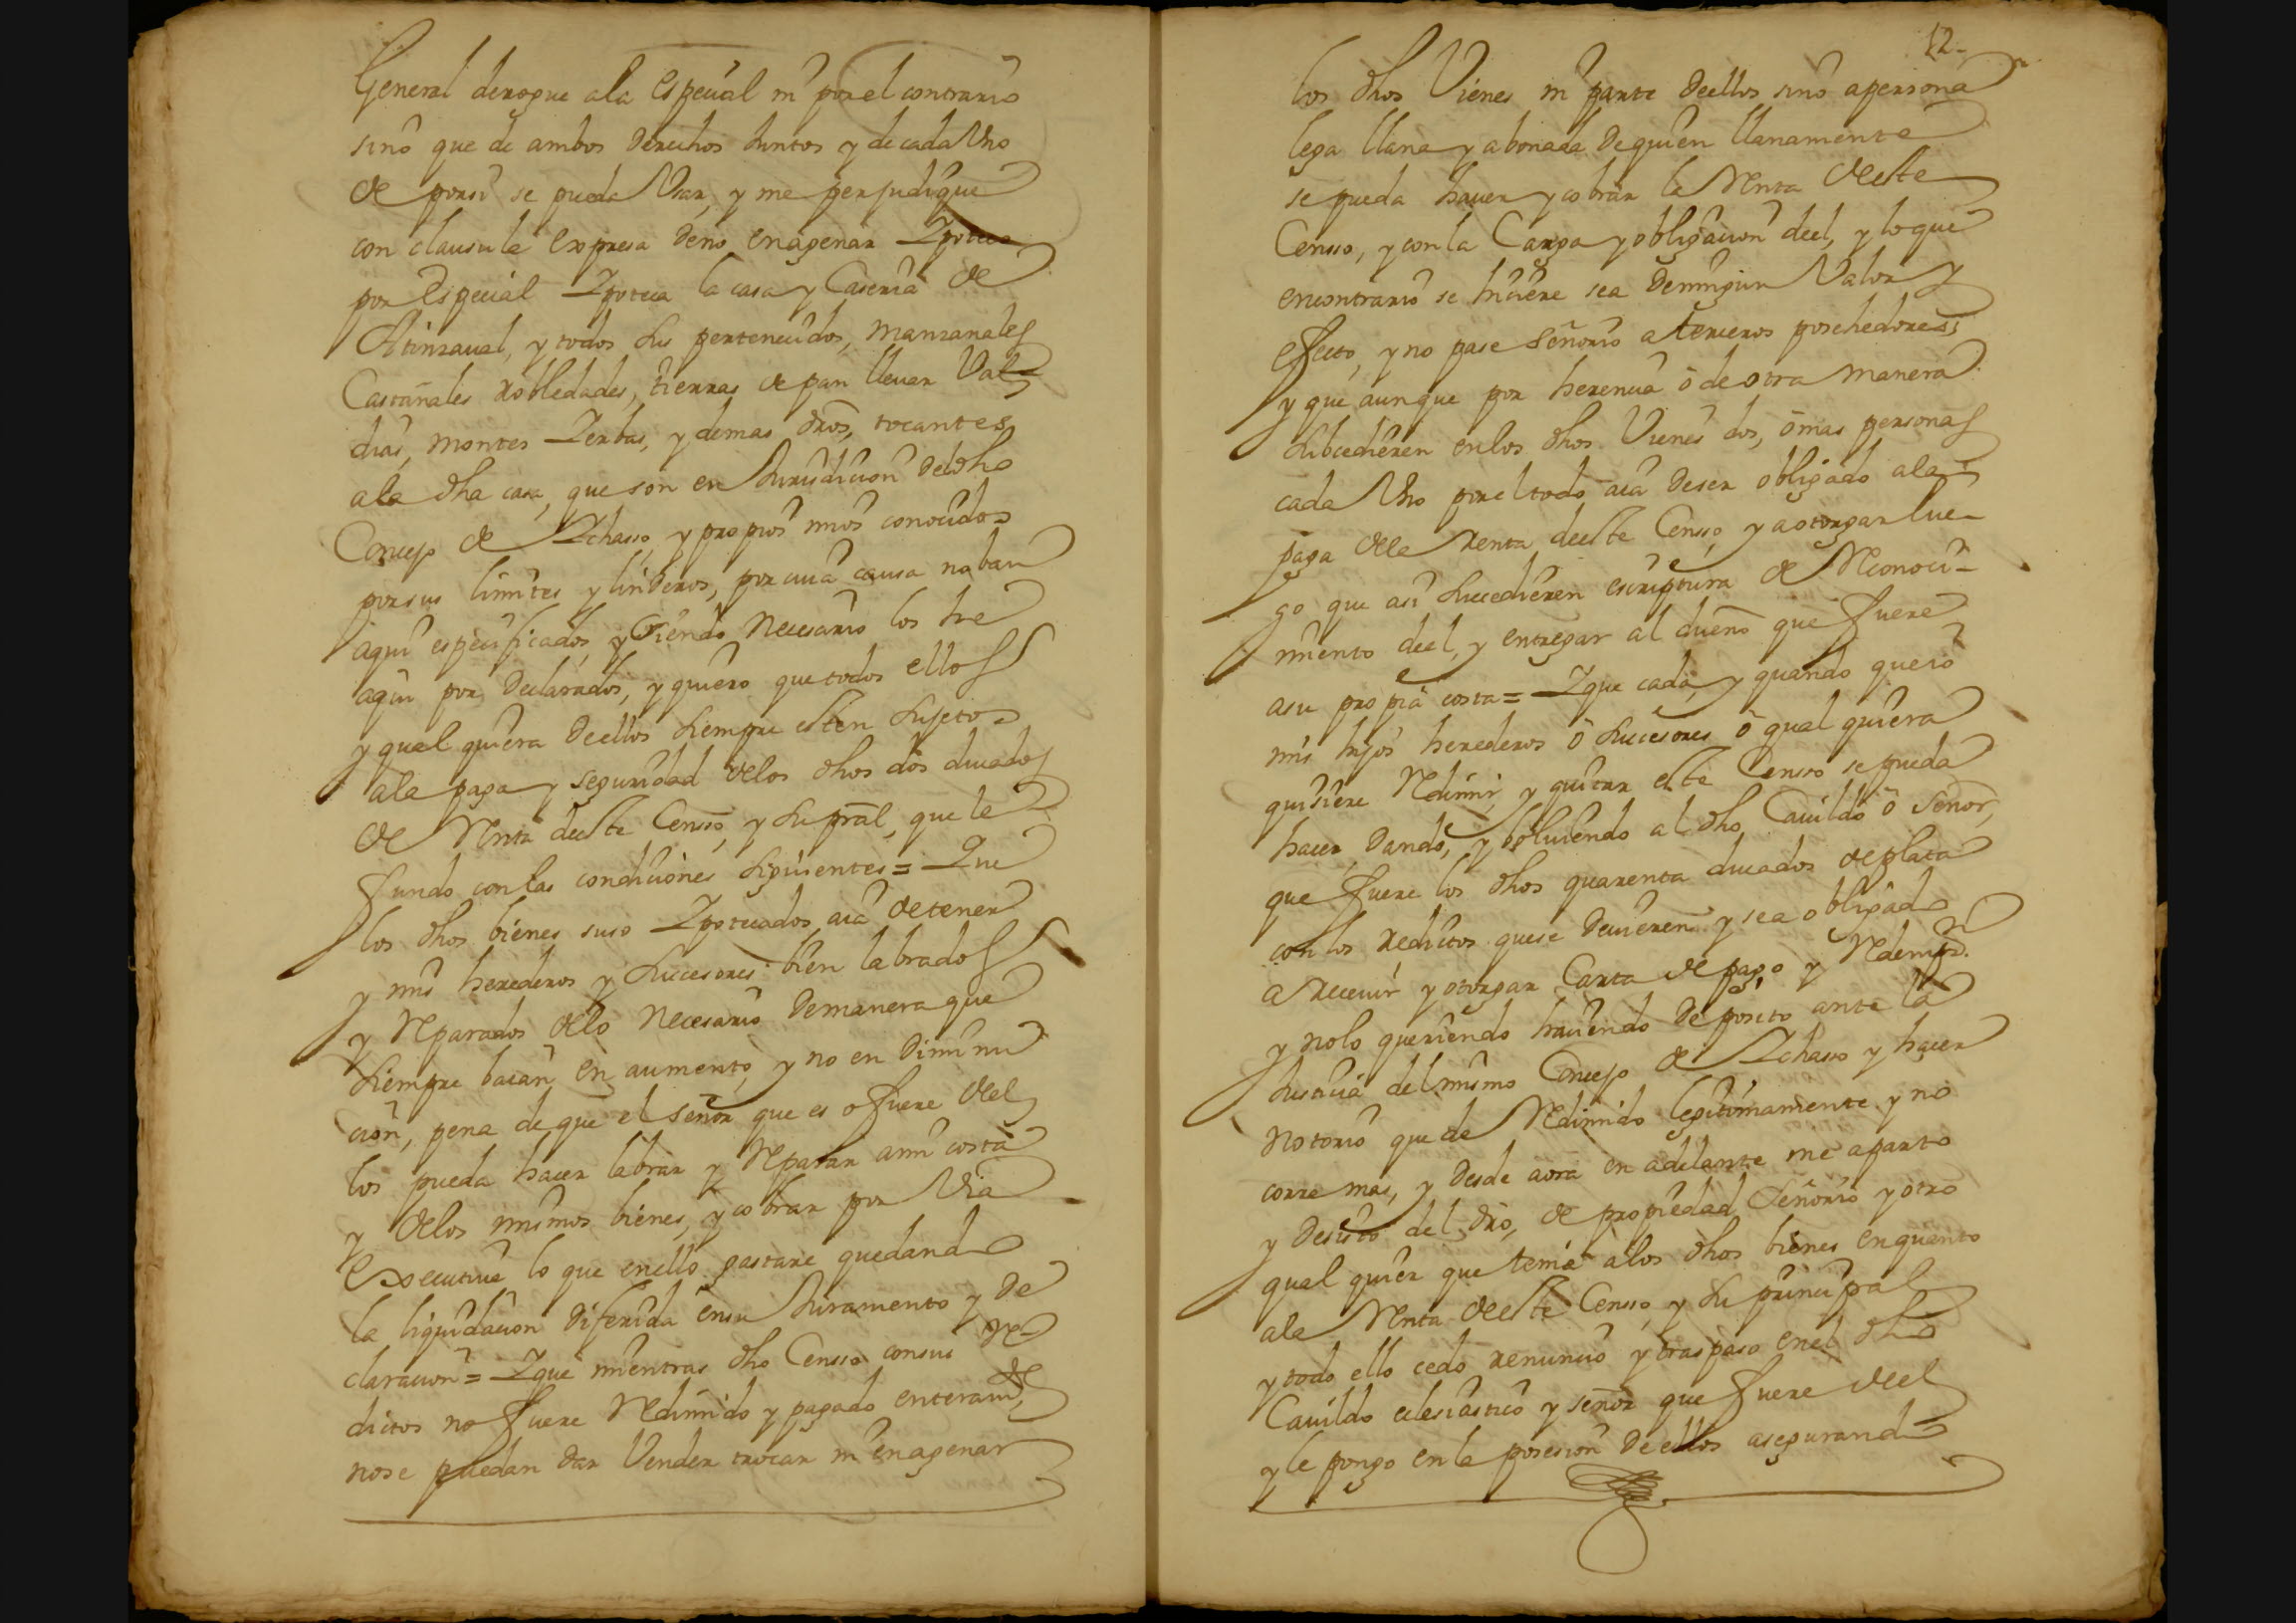 General derogue ala especial ni por el contrario
sino que de ambos derechos Juntos y de cada Vno
de por si se pueda Vsar, y me perjudique
con clausula expresa de no enagenar Ypoteco
por especial Ypoteca la casa y Caseria de
y todos sus pertenecidos, manzanales
Castañales Robledades, tierras de pan lleuar Val
dias, montes Yerbas, y demas dros, tocantes
ala dha casa, que son en Jurisdicion del dho
Concejo de Ychasso, y propios mios conocidos
por sus limites y linderos, por cuia causa no ban
aqui especificados, y siendo Necesario los he
aqui por declarados, y quiero que todos ellos
y qual quiera de ellos siempre esten sujetos
ala paga y seguridad delos dhos dos ducados
de Renta deeste Censso, y su pral, que le
fundo con las condiciones siguientes = Que
los dhos bienes suso Ypotecados aia de tener
y mis herederos y succesores bien labrados
y Reparados delo Necesario de manera que
siempre baian en aumento, y no en diminu
cion, pena de que el señor que es o fuere del
los pueda hacer labrar y Reparar a mi costa
y delos mismos bienes, y cobrar por Via
executiua lo que en ello gastare quedando
la liquidacion diferida en su Juramento y de
claracion = Y que mientras dho Censso con sus Re
ditos no fuere Redimido y pagado enteramte,
no se puedan dar Vender trocar ni enagenar
12-
los dhos Vienes ni parte de ellos sino a persona
lega llana y abonada de quien llanamente
se pueda hauer y cobrar la Renta deeste
Censso, y con la Carga y obligacion deel, y lo que
en contrario se hiciere sea de ningun Valor y
efecto, y no pase señorio a terceros posehedores,
y que aunque por herencia ò de otra manera
subcedieren en los dhos Vienes dos, ò mas personas
cada Vno por el todo aia de ser obligado ala
paga dela renta deeste Censso, y a otorgar lue-
go que asi succedieren escriptura de Reconoci-
miento deel, y entregar al dueño que fuere
a su propia costa = Y que cada, y quando que io
mis hijos herederos ò succesores ò qual quiera
quisiere Redimir, y quitar este Censso se pueda
hacer dando, y boluiendo al dho, Cauildo ò señor,
que fuere los dhos quarenta ducados de plata
con los reditos que se deuieren y sea obligado
a receuir y otorgar Carta de pago y Redempn.
y no lo queriendo haciendo deposito ante la
Justicia del mismo Concejo de Ychasso y hacer
notorio quede Redimido legitimamente y no
corre mas, y desde aora en adelante me aparto
y desisto del dro, de propiedad señorio y otro
qual quier que tenia alos dhos bienes en quanto
ala Renta deeste Censso, y su principal
y todo ello cedo renuncio y traspaso en el dho
Cauildo eclesiastico y señor que fuere deel
y le pongo en la posesion de ellos asegurando